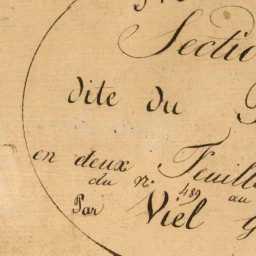 Sectio
dite du
en deux Feuill
du n. 489 au
Par Viel G